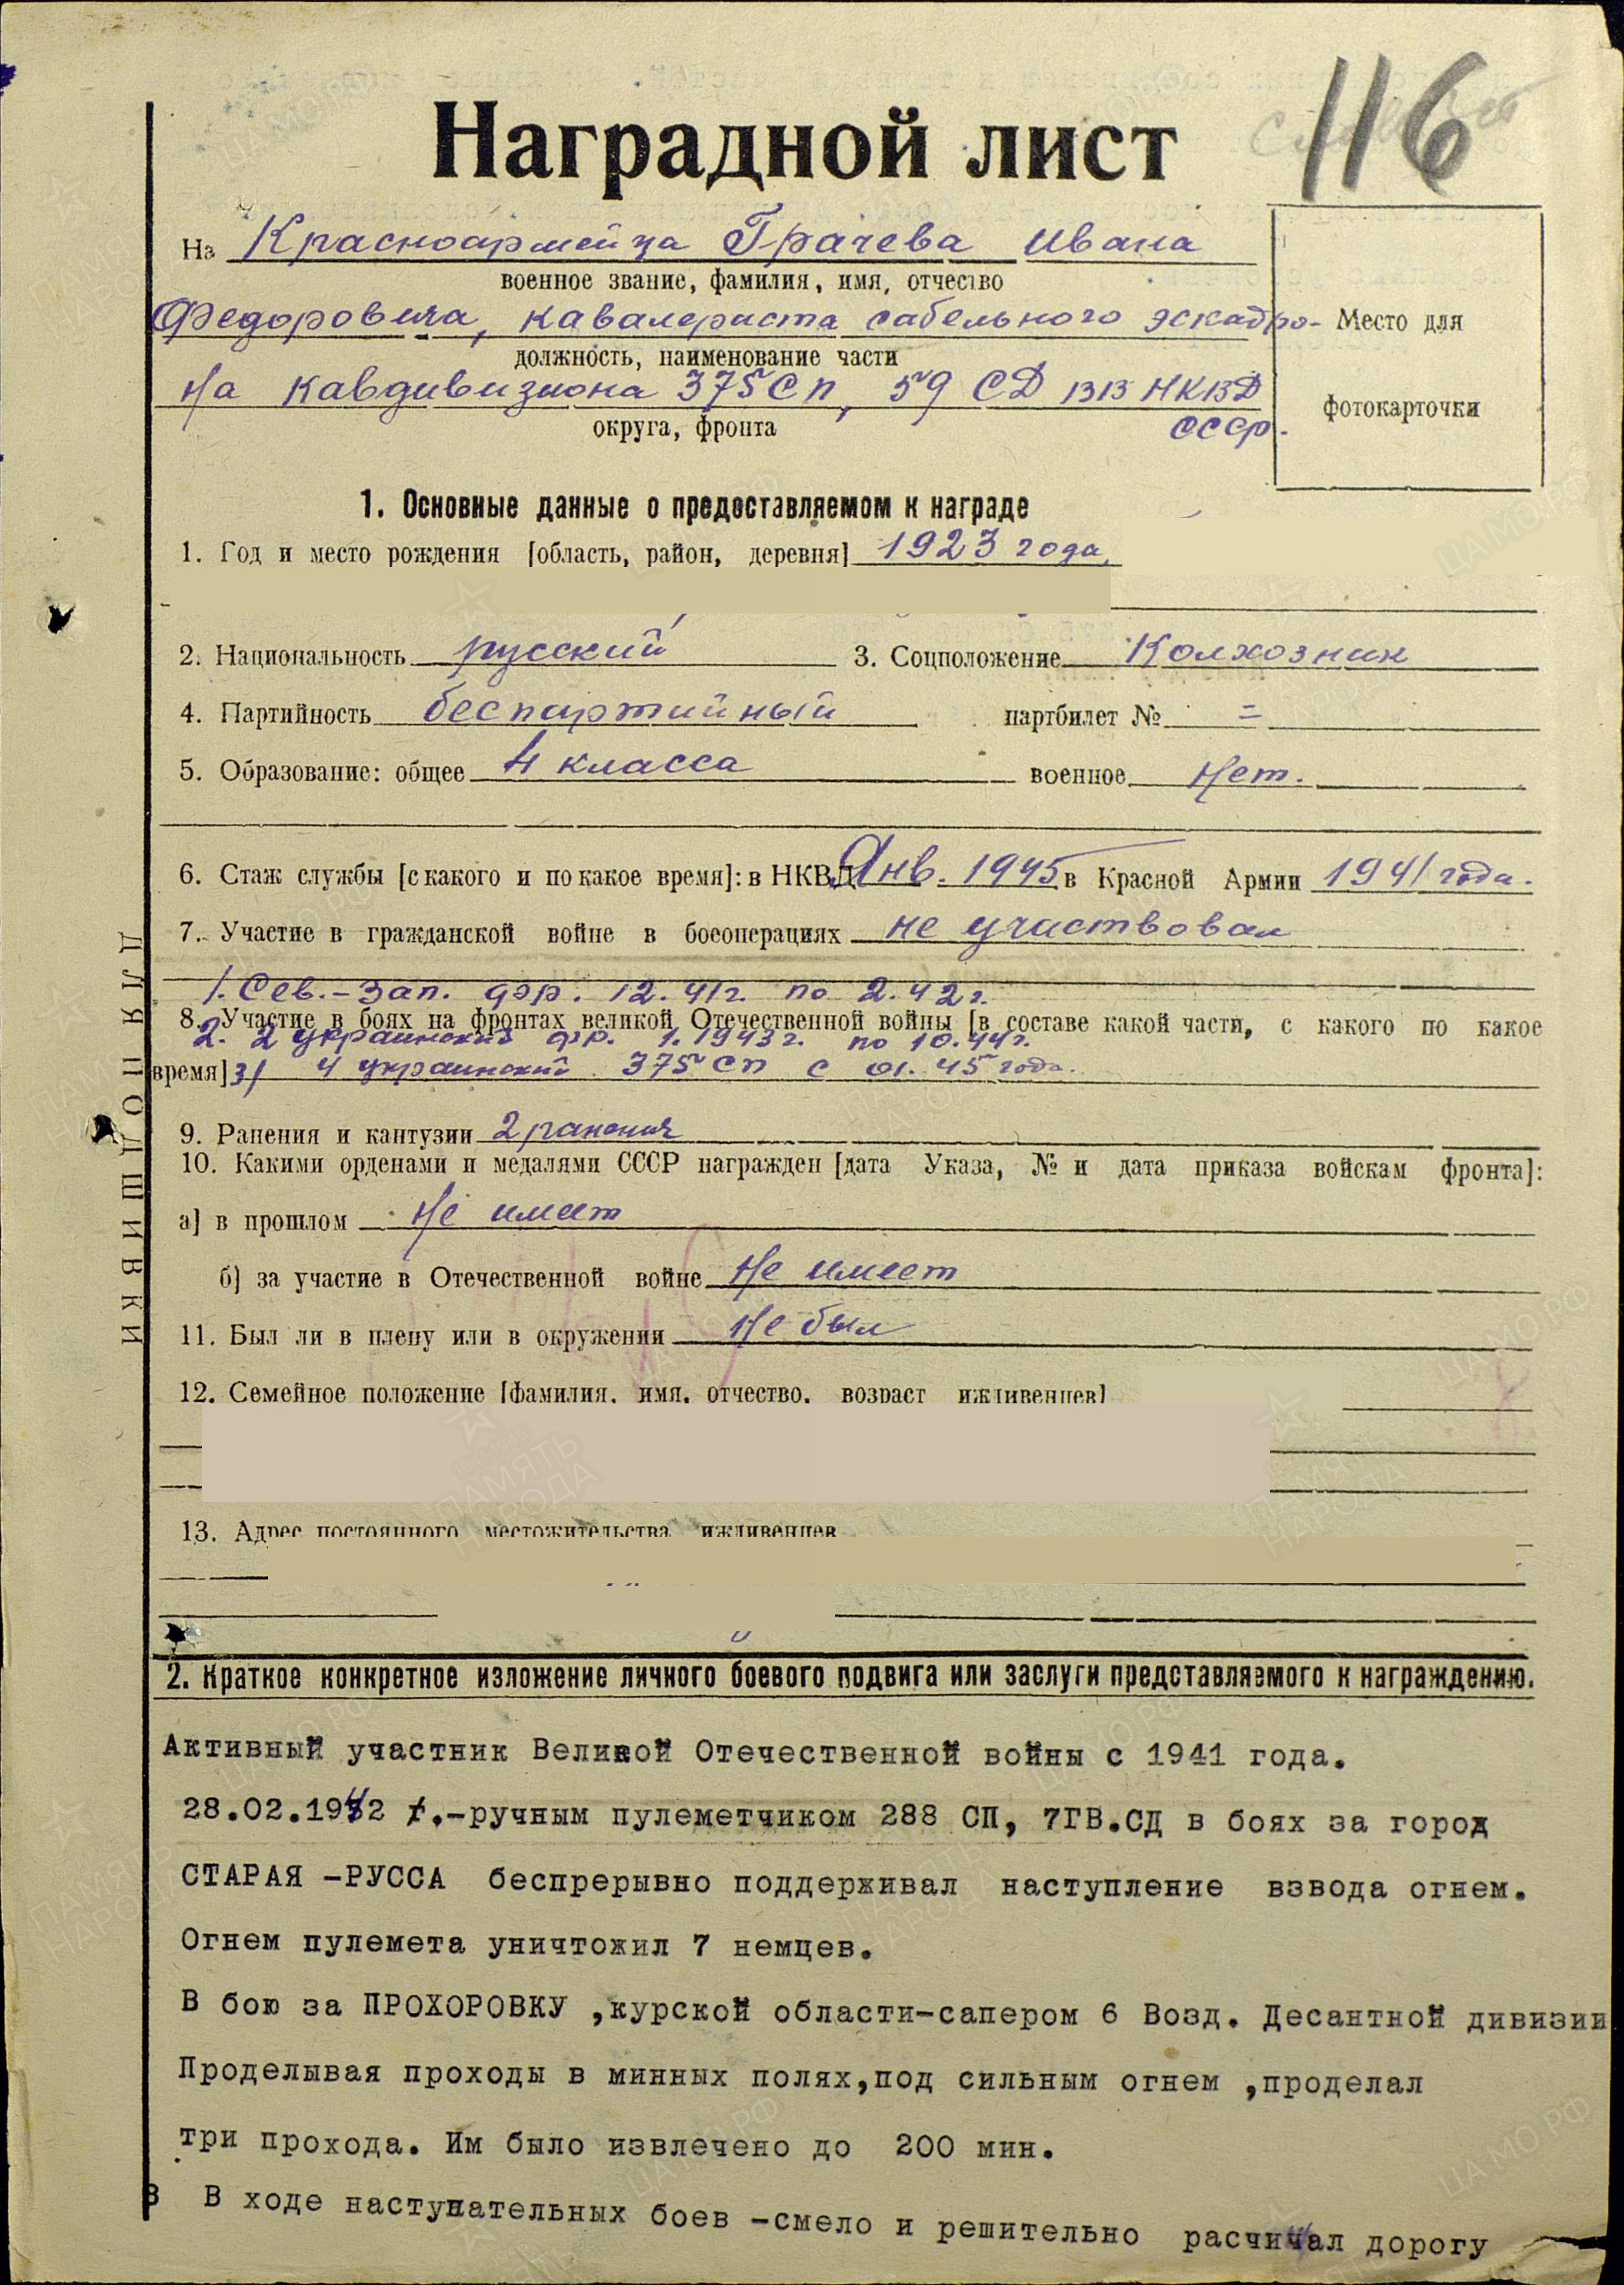 116
Наградной лист
На Красноармейца Грачева Ивана
военное звание, фамилия, имя, отчество
Федоровича, кавалериста сабельного эскадро-
должность, наименование части
на кавдивизиона 375 СП, 59 СД ВВ НКВД
СССР.
округа, фронта
Место для
фотокарточки
1. Основные данные о предоставляемом к награде
1. Год и место рождения [область, район, деревня] 1923 года,
2. Национальность русский 3. Соцположение Колхозник
4. Партийность беспартийный партбилет № =
5. Образование: общее 4 класса военное Нет.
6. Стаж службы [с какого и по какое время]: в НКВД Янв. 1945 в Красной Армии 1941 года.
7. Участие в гражданской войне в боеоперациях не участвовал
1. Сев.-Зап. фр. 12.41г. по 2.42г.
8. Участие в боях на фронтах великой Отечественной войны [в составе какой части, с какого по какое
2. 2 украинский фр. 1.1943г. по 10.44г.
время] 3) 4 украинский 375 СП с 01.45 года.
9. Ранения и кантузии 2 ранения
10. Какими орденами и медалями СССР награжден [дата Указа, № и дата приказа войскам фронта]:
а] в прошлом Не имеет
б] за участие в Отечественной войне Не имеет
11. Был ли в плену или в окружении Не был
12. Семейное положение [фамилия, имя, отчество, возраст иждивенцев]
13. Адрес постоянного местожительства иждивенцев
2. Краткое конкретное изложение личного боевого подвига или заслуги представляемого к награждению.
Активный участник Великой Отечественной войны с 1941 года.
28.02.1942 г.-ручным пулеметчиком 288 СП, 7ГВ.СД в боях за город
СТАРАЯ -РУССА беспрерывно поддерживал наступление взвода огнем.
Огнем пулемета уничтожил 7 немцев.
В бою за ПРОХОРОВКУ ,курской области-сапером 6 Возд. Десантной дивизии
Проделывая проходы в минных полях,под сильным огнем ,проделал
три прохода. Им было извлечено до 200 мин.
В В ходе наступательных боев -смело и решительно расчичал дорогу
ДЛЯ ПОДШИВКИ
ПАМЯТЬ НАРОДА
ЦА МО РФ